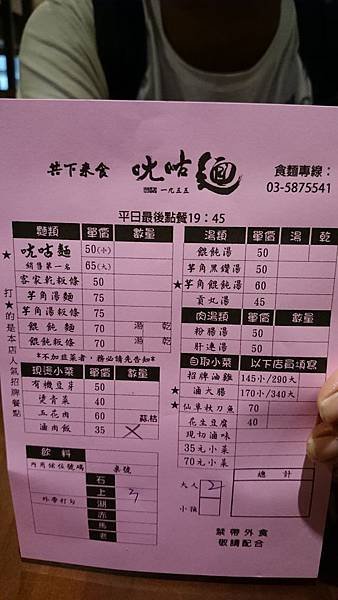 共下來食 咣咕麵 一九五五
食麵專線：
03-5875541
平日最後點餐19：45
麵類 單價 數量
★ 咣咕麵 銷售第一名 50(小)
65(大)
客家乾粄條 50
芋角湯麵 75
芋角湯粄條 75
餛飩麵 70 湯 乾
★ 餛飩粄條 70 湯 乾
*不加韭菜者，務必請先告知*
打★的是本店人氣招牌餐點
現燙小菜 單價 數量
有機豆芽 50
燙青菜 40
五花肉 60 蒜.桔
滷肉飯 35 ×
飲料
內用依位號碼 桌號
外帶打勾
石
上
湖
赤
馬
老
湯類 單價 湯 乾
餛飩湯 50
芋角黑鑽湯 50
★ 芋角餛飩湯 60
貢丸湯 45
肉湯類 單價 數量
粉腸湯 50
肝連湯 50
自取小菜 以下店員填寫
招牌油雞 145小/290大
★ 滷大腸 170小/340大
★ 仙草秋刀魚 70
花生豆腐 40
現切滷味
35元小菜
70元小菜
總計
大人 2
小孩
禁帶外食
敬請配合